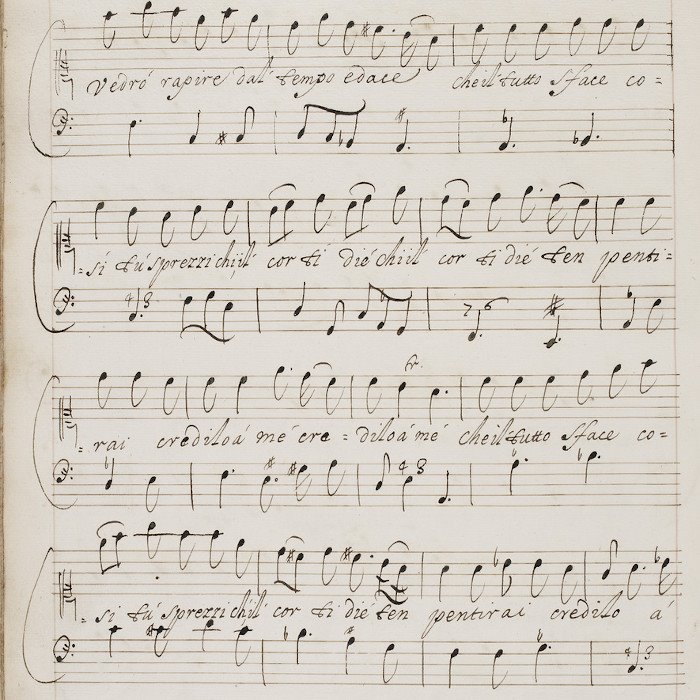 vedró rapire dal' tempo edace che il tutto sface co=
=si tú sprezzi chi il cor ti dié chi il cor ti dié ten penti=
=rai crediloá mé cre=diloá mé che il tutto sface co=
=si tú sprezzi chil cor ti dié ten pentirai credilo á